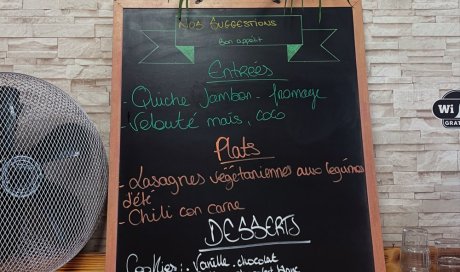 Nos Suggestions
Bon appétit
Entrées
- Quiche Jambon - fromage
- Velouté maïs, coco
Plats
- Lasagnes végétariennes aux légumes
d'été
- Chili con carne
DESSERTS
Cookies: . Vanille . chocolat
chocolat blanc
Wi
GRAT